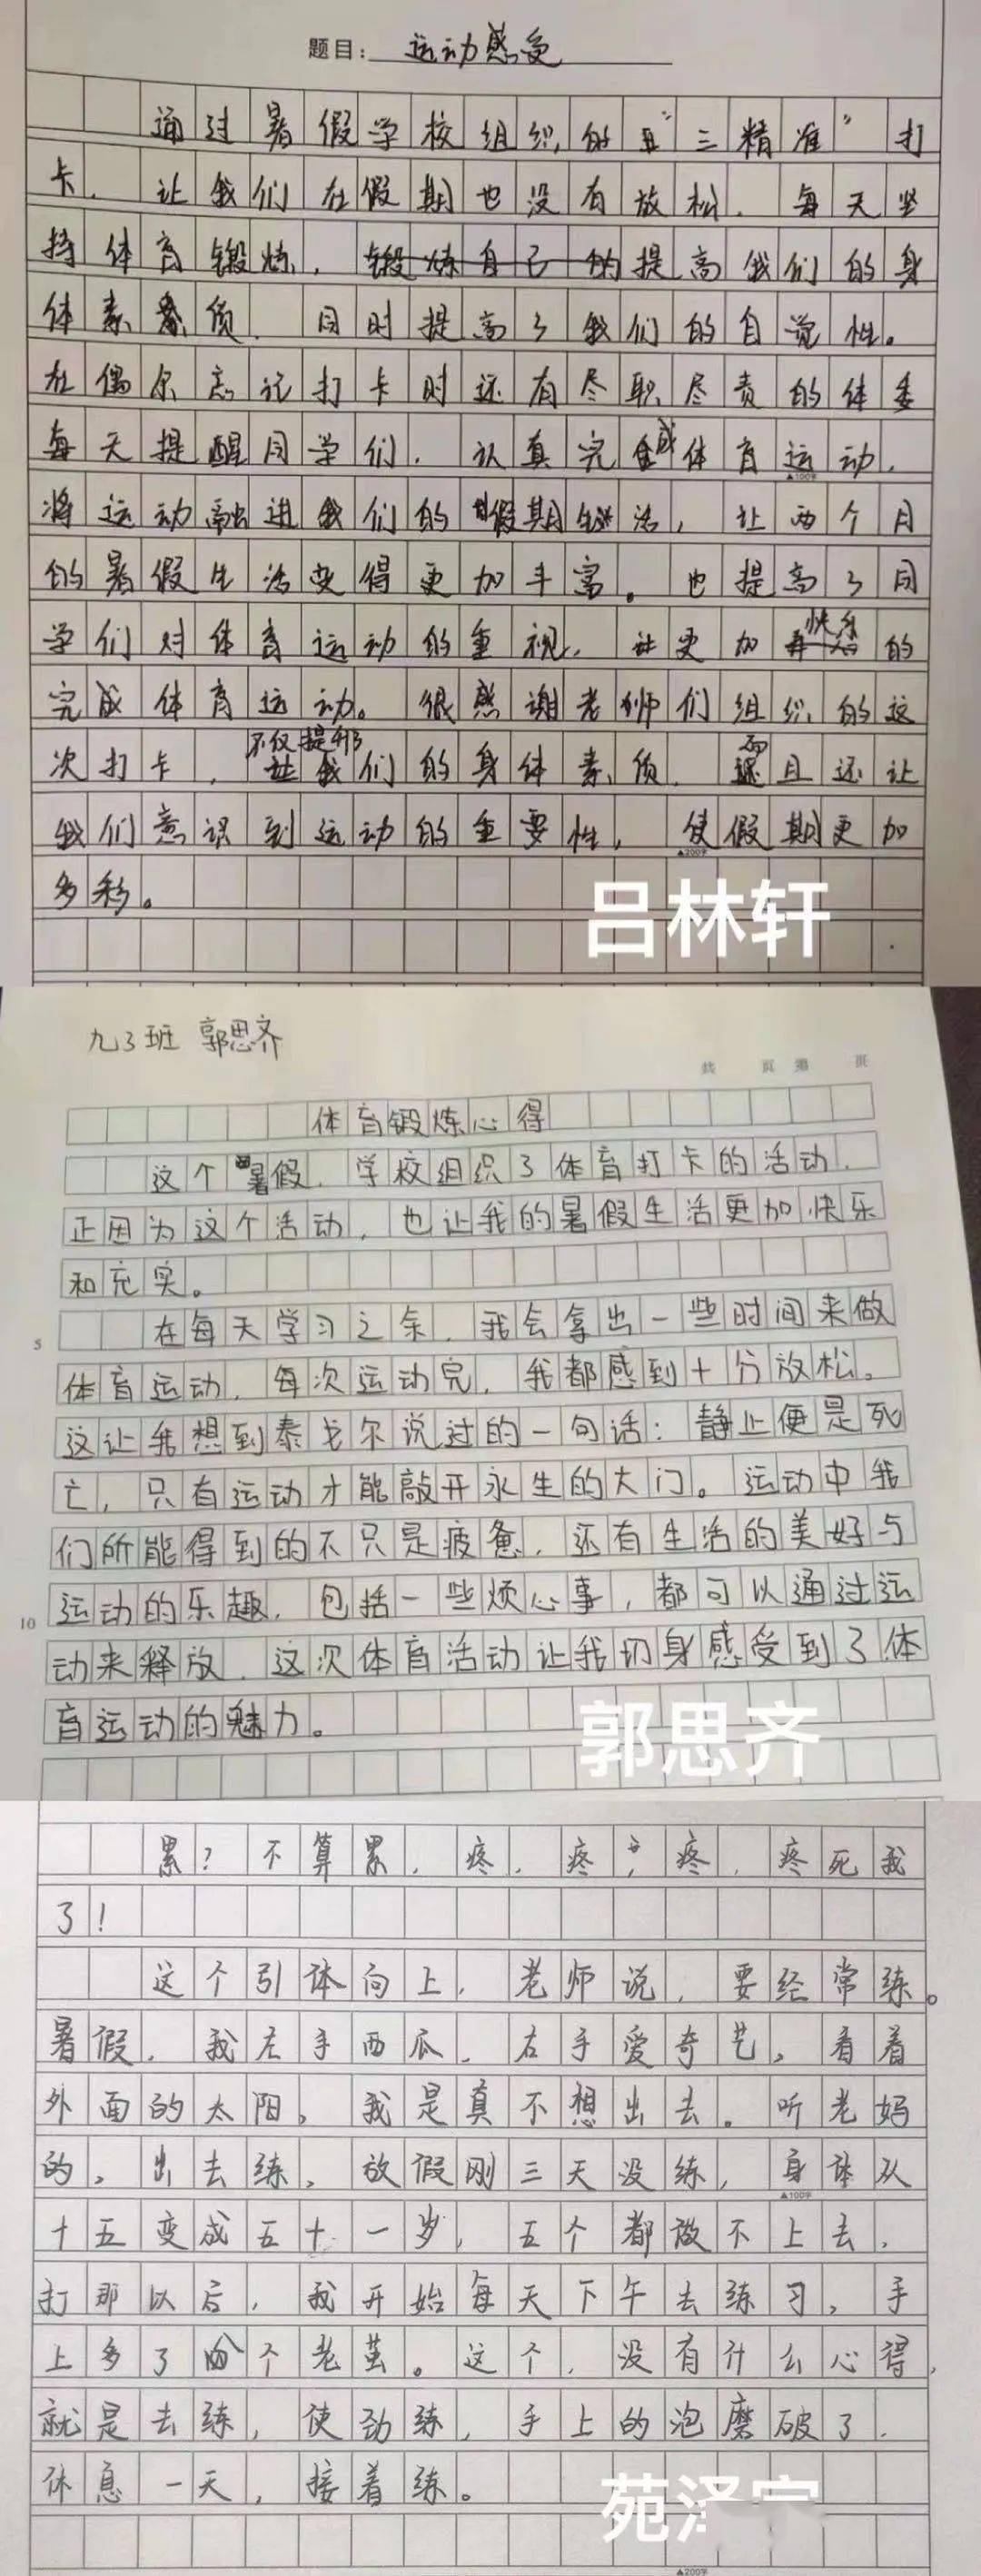 题目：运动感受
通过暑假学校组织的“三精准”打
卡，让我们在假期也没有放松，每天坚
持体育锻炼，锻炼自己的提高我们的身
体素质，同时提高了我们的自觉性。
在偶尔忘记打卡时还有尽职尽责的体委
每天提醒同学们，认真完成体育运动，
将运动融进我们的假期生活，让两个月
的暑假生活变得更加丰富。也提高了同
学们对体育运动的重视，让更加快乐的
完成体育运动。很感谢老师们组织的这
次打卡，不仅提升我们的身体素质，而且还让
我们意识到运动的重要性，使假期更加
▲100字
▲200字
多彩。
吕林轩
九3班 郭思齐
共 页 第 页
体育锻炼心得
这个暑假，学校组织了体育打卡的活动，
正因为这个活动，也让我的暑假生活更加快乐
和充实。
5 在每天学习之余，我会拿出一些时间来做
体育运动，每次运动完，我都感到十分放松。
这让我想到泰戈尔说过的一句话：静止便是死
亡，只有运动才能敲开永生的大门。运动中我
们所能得到的不只是疲惫，还有生活的美好与
10 运动的乐趣，包括一些烦心事，都可以通过运
动来释放，这次体育活动让我切身感受到了体
育运动的魅力。
郭思齐
累？不算累，疼，疼，疼，疼死我
了！
这个引体向上，老师说，要经常练。
暑假，我左手西瓜，右手爱奇艺，看着
外面的太阳，我是真不想出去。听老妈
的，出去练，放假刚三天没练，身体从
▲100字
十五变成五十一岁，五个都做不上去，
打那以后，我开始每天下午去练习，手
上多了两个老茧。这个，没有什么心得，
就是去练，使劲练，手上的泡磨破了，
休息一天，接着练。
苑泽宇
▲200字